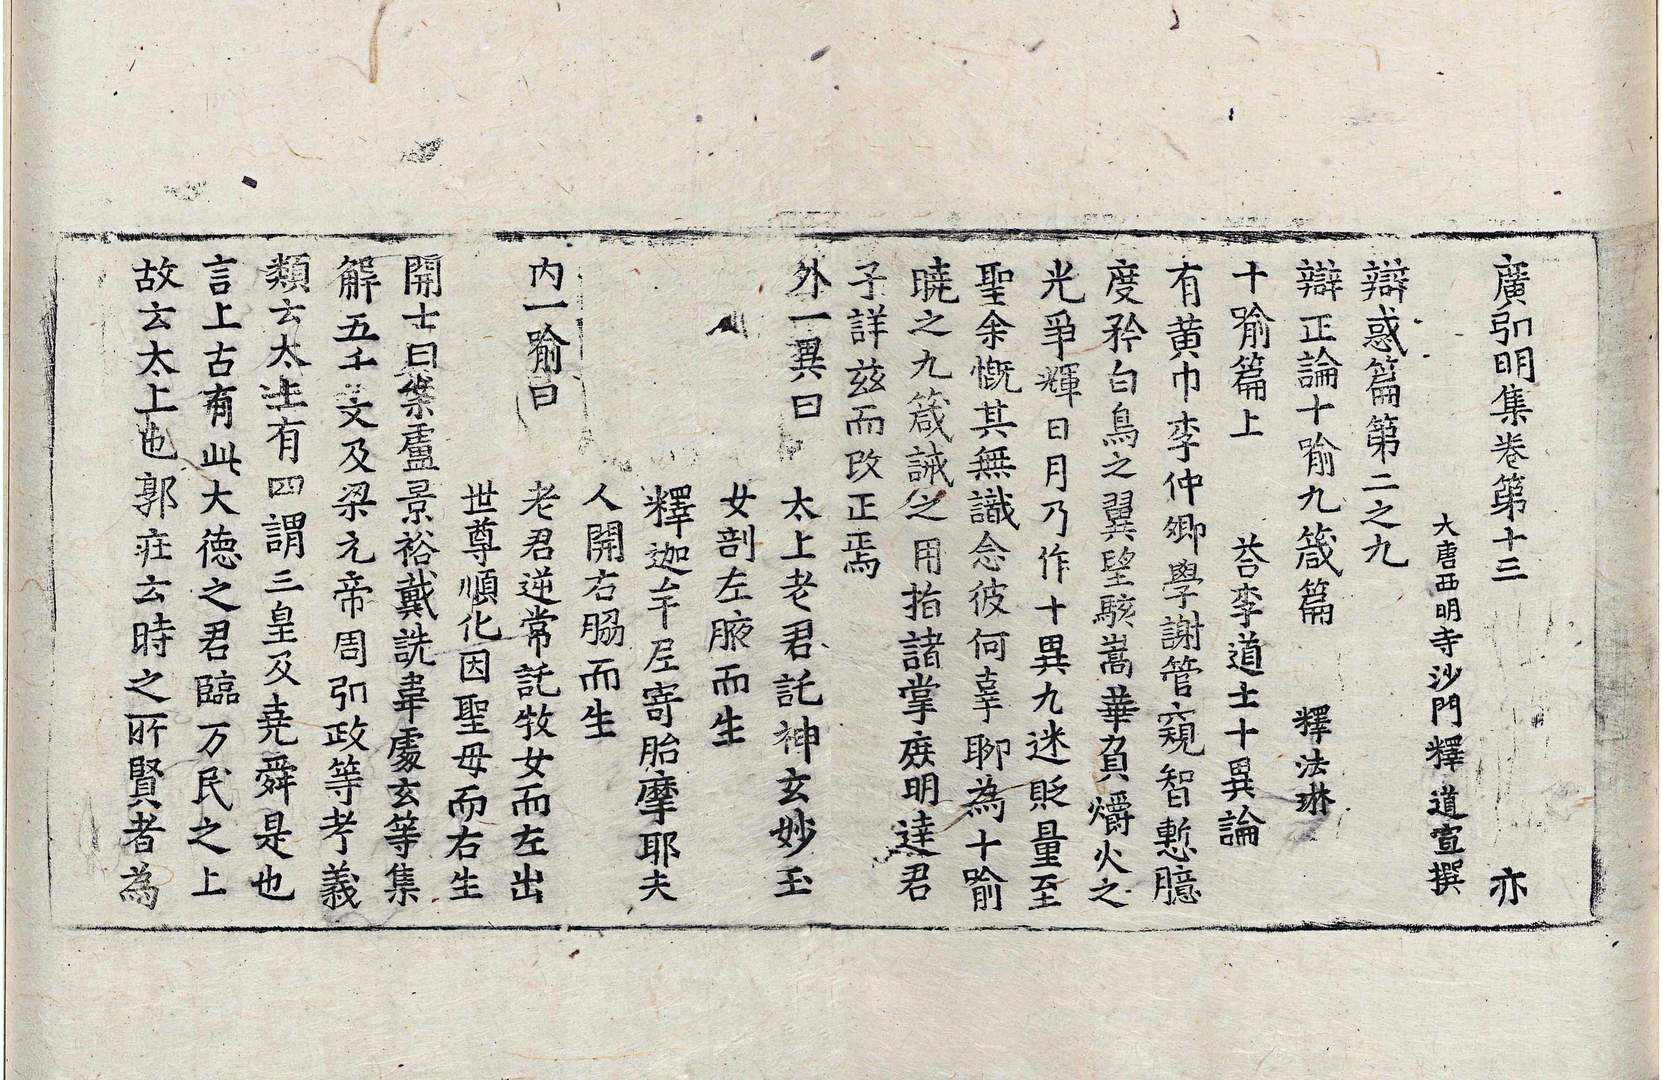 廣弘明集卷第十三 亦
大唐西明寺沙門釋 道宣撰
辯惑篇第二之九
辯正論十喻九箴篇 釋法琳
十喻篇上 荅李道士十異論
有黃巾李仲卿學謝管窺智慙臆
度矜白鳥之翼望駭嵩華負爝火之
光爭輝日月乃作十異九迷貶量至
聖余慨其無識念彼何辜聊為十喻
曉之九箴誡之用指諸掌庻明達君
子詳茲而改正焉
外一異曰 太上老君託神玄妙玉
女剖左腋而生
釋迦牟尼寄胎摩耶夫
人開右脇而生
內一喻曰 老君逆常託牧女而左出
世尊順化因聖母而右生
開士曰案盧景裕戴詵韋處玄等集
解五千文及梁元帝周弘政等考義
類云太上有四謂三皇及堯舜是也
言上古有此大德之君臨万民之上
故云太上也郭莊云時之所賢者為